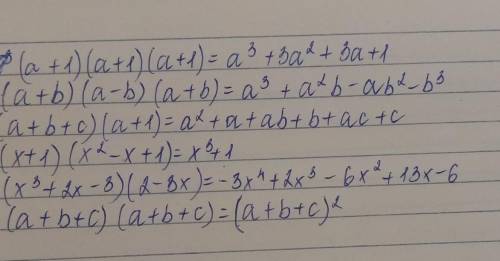 (a+1)(a+1)(a+1)=a³+3a²+3a+1
(a+b)(a-b)(a+b)=a³+a²b-ab²-b³
(a+b+c)(a+1)=a²+a+ab+b+ac+c
(x+1)(x²-x+1)=x³+1
(x³+2x-3)(2-3x)=-3x⁴+2x³-6x²+13x-6
(a+b+c)(a+b+c)=(a+b+c)²